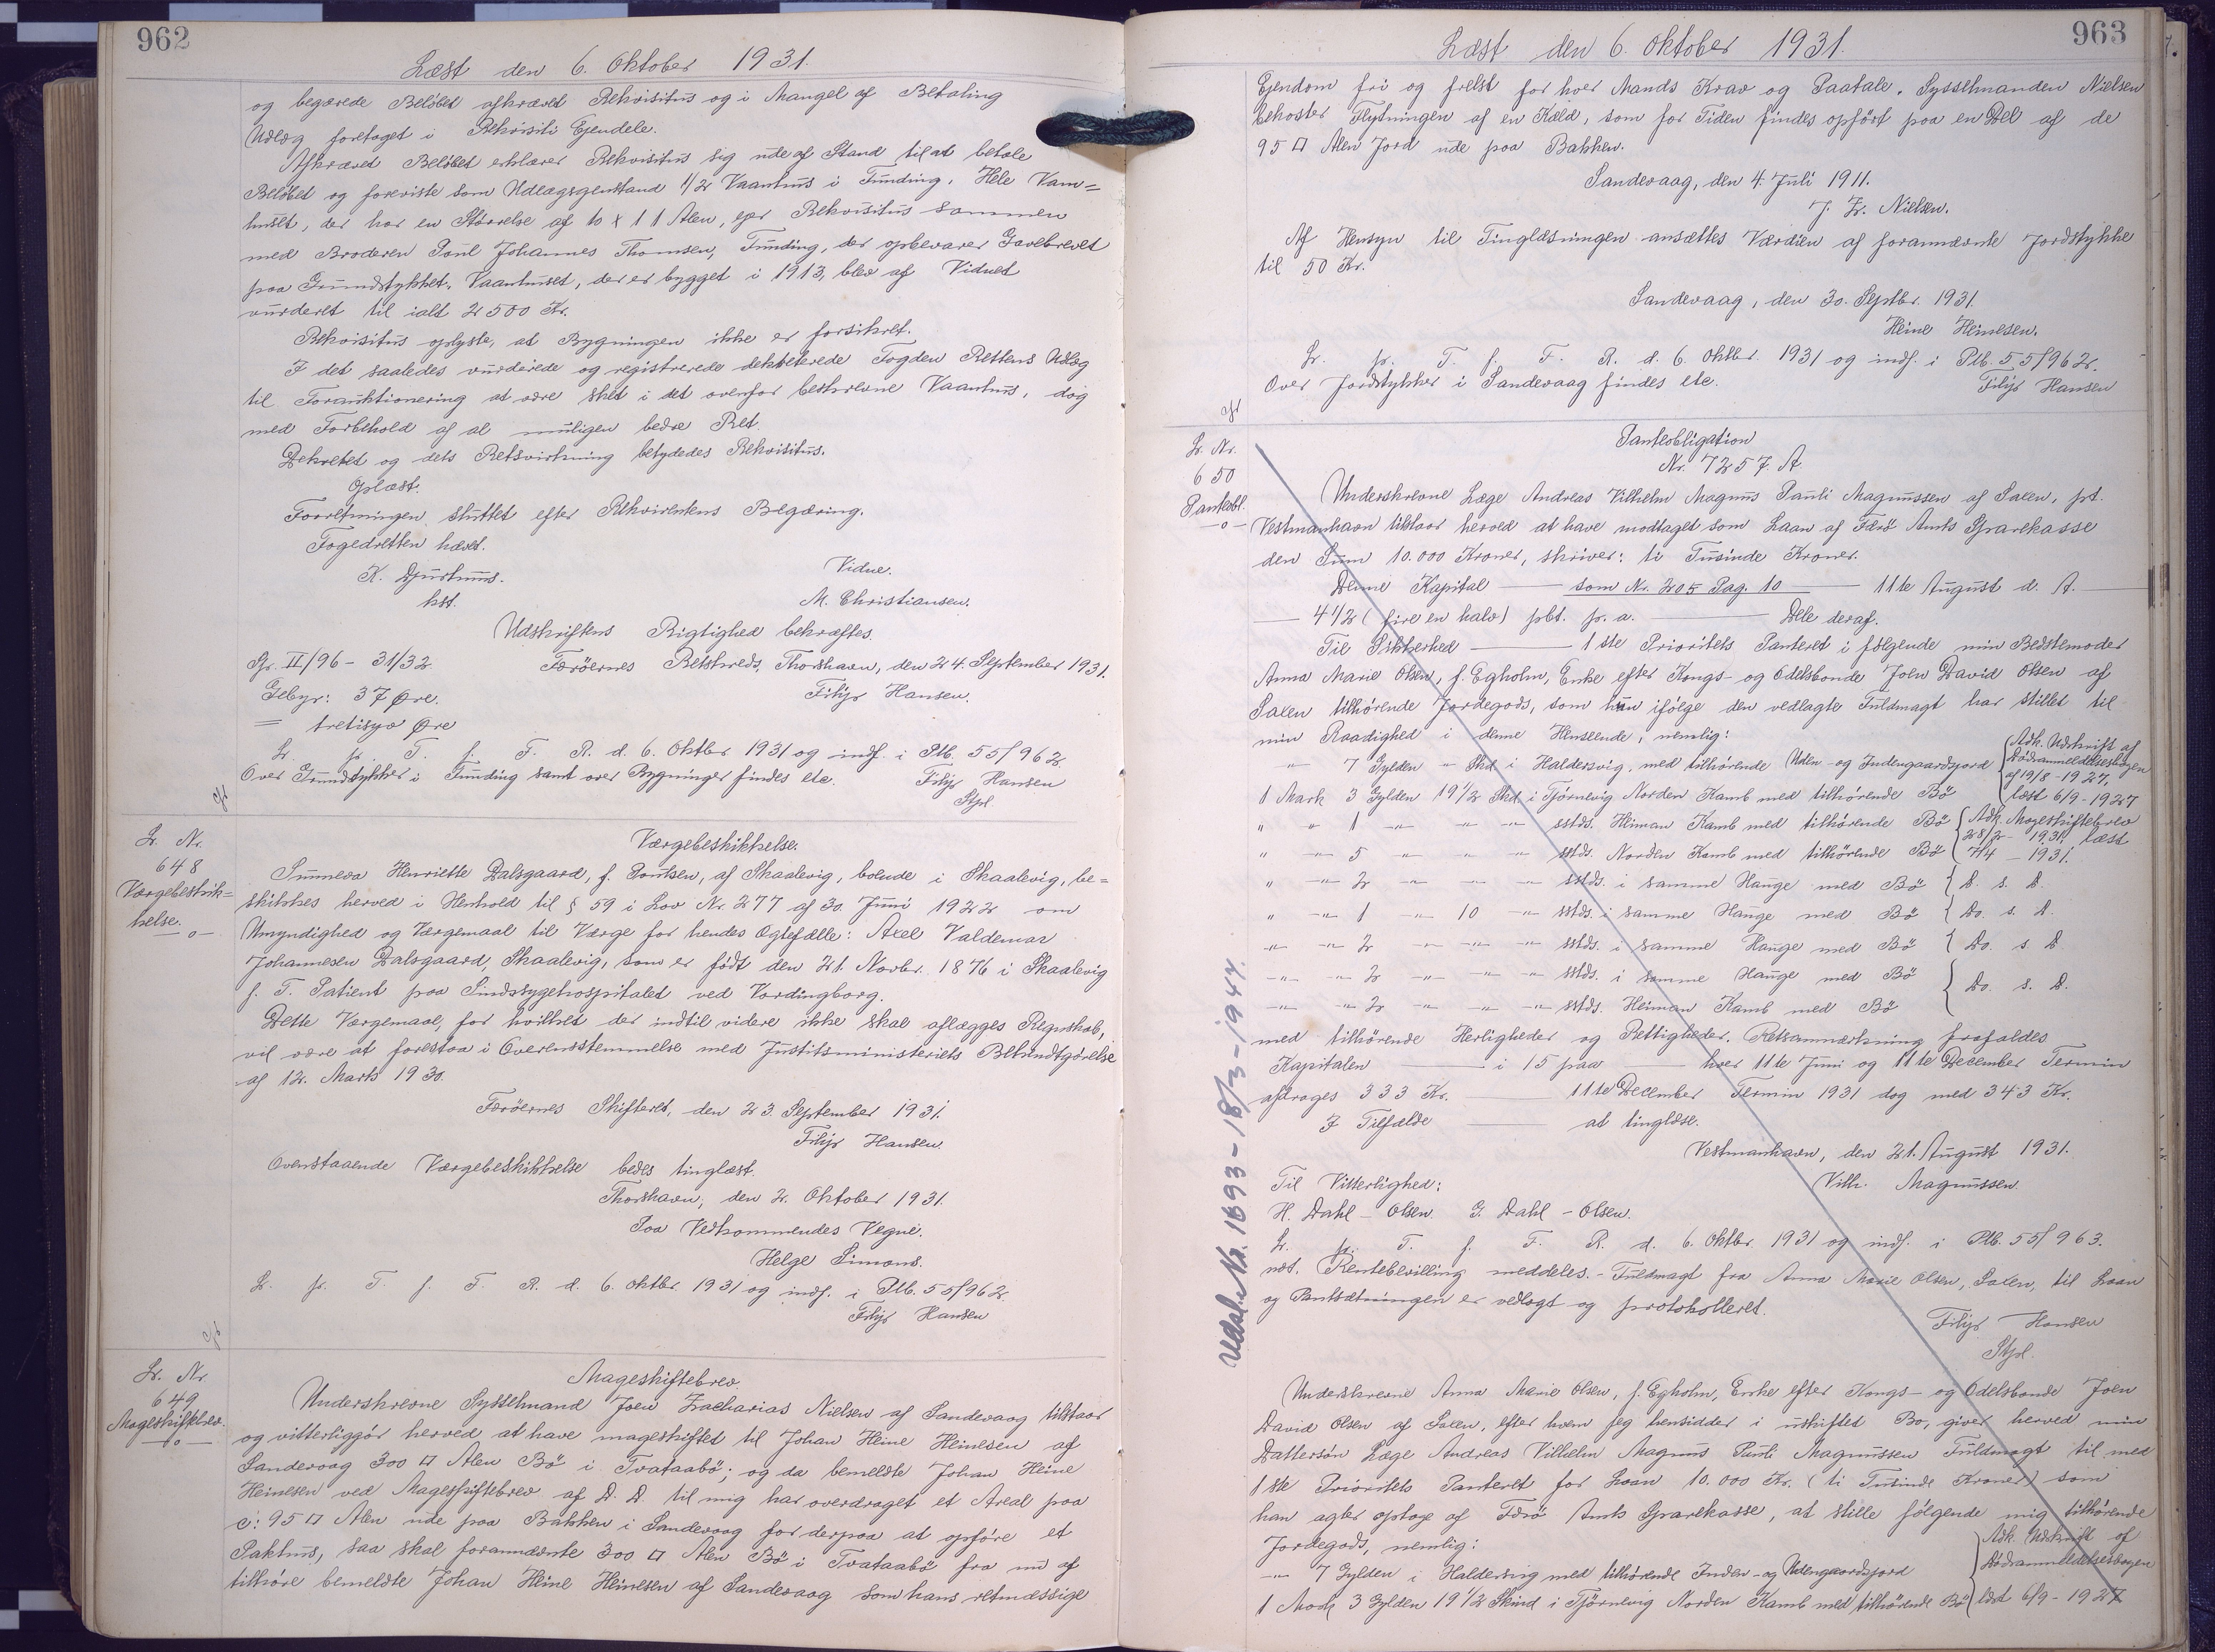 962
Læst den 6. Oktober 1931.
og begærede Beløbet afkrævet Rekvisitus og i Mangel af Betaling
Udlæg foretaget i Rekvisiti Ejendele.
Afkrævet Beløbet erklærer Rekvisitus sig ude af Stand til at betale
Beløbet og foreviste som Udlægsgenstand 1/2 Vaanhus i Funding. Hele Vaan=
huset, der har en Størrelse af 10 x 11 Alen, ejer Rekvisitus sammen
med Broderen Poul Johannes Thomsen, Funding, der opbevarer Gavebrevet
paa Grundstykket. Vaanhuset, der er bygget i 1913, blev af Vidnet
vurderet til ialt 2500 Kr.
Rekvisitus oplyste, at Bygningen ikke er forsikret.
I det saaledes vurderede og registrerede dekreterede Fogden Rettens Udlæg
til Forauktionering at være sket i det ovenfor beskrevne Vaanhus, dog
med Forbehold af al muligen bedre Ret.
Dekretet og dets Retsvirkning betydedes Rekvisitus.
Oplæst.
Forretningen sluttet efter Rekvirentens Begæring.
Fogedretten hævet.
K. Djurhuus.
kst.
Vidne.
M. Christiansen.
Udskriftens Rigtighed bekræftes.
Gr. II/96 - 31/32. Færøernes Retskreds, Thorshavn, den 24. September 1931.
Gebyr: 37 Øre. Filip Hansen.
= tretisyv Øre
L. pr. T. f. F. R. d. 6. Oktbr 1931 og indf. i Ptb. 55/962.
Over Grundstykker i Funding samt over Bygninger findes etc. Filip Hansen
Stpl
cft
L. Nr.
648
Værgebeskik=
kelse.
—o—
Værgebeskikkelse.
Sunneva Henriette Dalsgaard, f. Poulsen, af Skaalevig, boende i Skaalevig, be=
skikkes herved i Henhold til § 59 i Lov Nr. 277 af 30. Juni 1922 om
Umyndighed og Værgemaal til Værge for hendes Ægtefælle: Axel Valdemar
Johannesen Dalsgaard, Skaalevig, som er født den 21. Novbr. 1876 i Skaalevig
f. T. Patient paa Sindssygehospitalet ved Vordingborg.
Dette Værgemaal, for hvilket der indtil videre ikke skal aflægges Regnskab,
vil være at forestaa i Overensstemmelse med Justitsministeriets Bekendtgørelse
af 12. Marts 1930.
Færøernes Skifteret, den 23. September 1931.
Filip Hansen.
Ovenstaaende Værgebeskikkelse bedes tinglæst.
Thorshavn, den 2. Oktober 1931.
Paa Vedkommendes Vegne.
Helge Simons.
L. pr. T. f. F. R. d. 6. Oktbr 1931 og indf. i Ptb. 55/962.
Filip Hansen
cft
L. Nr.
649
Mageskiftebrev.
—o—
Mageskiftebrev.
Underskrevne Sysselmand Joen Zacharias Nielsen af Sandevaag tilstaar
og vitterliggør herved at have mageskiftet til Johan Heine Heinesen af
Sandevaag 300 □ Alen Bø i Tvataabø; og da bemeldte Johan Heine
Heinesen ved Mageskiftebrev af D. D. til mig har overdraget et Areal paa
c: 95 □ Alen ude paa Bakken i Sandevaag for derpaa at opføre et
Pakhus, saa skal forannævnte 300 □ Alen Bø i Tvataabø fra nu af
tilhøre bemeldte Johan Heine Heinesen af Sandevaag som hans retmæssige
963
Læst den 6. Oktober 1931.
Ejendom fri og frelst for hver Mands Krav og Paatale. Sysselmanden Nielsen
bekoster Flytningen af en Kæld, som for Tiden findes opført paa en Del af de
95 □ Alen Jord ude paa Bakken.
Sandevaag, den 4. Juli 1911.
J. Z. Nielsen.
Af Hensyn til Tinglæsningen ansættes Værdien af forannævnte Jordstykke
til 50 Kr.
Sandevaag, den 30. Septbr. 1931.
Heine Heinesen.
L. pr. T. f. F. R. d. 6. Oktbr. 1931 og indf. i Ptb. 55/962.
Over Jordstykker i Sandevaag findes etc. Filip Hansen
cft
L. Nr.
650
Panteobl.
—o—
Panteobligation
Nr. 7257 A.
Underskrevne Læge Andreas Vilhelm Magnus Pauli Magnussen af Saxen, pt.
Vestmanhavn tilstaar herved at have modtaget som Laan af Færø Amts Sparekasse
den Sum 10.000 Kroner, skriver: ti Tusinde Kroner.
Denne Kapital — som Nr. 205 Pag. 10 — 11te August d. A. —
— 4 1/2 (fire en halv) pCt. p. a. — Dele deraf.
Til Sikkerhed — 1ste Prioritets Panteret i følgende min Bedstemoder
Anna Marie Olsen, f. Egholm, Enke efter Kongs- og Odelsbonde Joen David Olsen af
Saxen tilhørende Jordegods, som hun ifølge den vedlagte Fuldmagt har stillet til
min Raadighed i denne Henseende, nemlig:
" 7 Gylden " Skd i Haldersvig, med tilhørende Uden- og Indengaardsjord { Adk. Udskrift af Dødsanmeldelsesbogen af 19/8-1927, læst 6/9-1927
1 Mark 3 Gylden 19 1/2 Skd i Tjørnevig Norden Kamb med tilhørende Bø
" " 1 " " " sstds. Heiman Kamb med tilhørende Bø { Adk. Mageskiftebrev 28/2-1931, læst 7/4-1931.
" " 5 " " " sstds. Norden Kamb med tilhørende Bø
" " 2 " " " sstds. i samme Hauge med Bø { D. s. D.
" " 1 " 10 " sstds. i samme Hauge med Bø { Do. s. D.
" " 2 " " " sstds. i samme Hauge med Bø { Do. s. D
" " 2 " " " sstds. i samme Hauge med Bø { Do. s. D.
" " 2 " " " sstds. Heiman Kamb med Bø
med tilhørende Herligheder og Rettigheder. Retsanmærkning frafaldes
Kapitalen — i 15 paa — hver 11te Juni og 11te December Termin
afdrages 333 Kr. — 11te December Termin 1931 dog med 343 Kr.
I Tilfælde — at tinglæse.
Vestmanhavn, den 21. August 1931.
Til Vitterlighed: Vilh. Magnussen.
H. Dahl-Olsen. G. Dahl-Olsen.
L. pr. T. f. F. R. d. 6. Oktbr. 1931 og indf. i Ptb. 55/963.
Rentebevilling meddeles. - Fuldmagt fra Anna Marie Olsen, Saxen, til Laan
og Pantsætningen er vedlagt og protokolleret.
Filip Hansen
Stpl.
Underskrevne Anna Marie Olsen, f. Egholm, Enke efter Kongs- og Odelsbonde Joen
David Olsen af Saxen, efter hvem jeg hensidder i uskiftet Bo, giver herved min
Dattersøn Læge Andreas Vilhelm Magnus Pauli Magnussen Fuldmagt til med
1ste Prioritets Panteret for Laan 10.000 Kr. (ti Tusinde Kroner) som
han agter optage af Færø Amts Sparekasse, at stille følgende mig tilhørende
Jordegods, nemlig:
" 7 Gylden i Haldersvig med tilhørende Inden- og Udengaardsjord { Adk. Udskrift af Dødsanmeldelsesbogen
1 Mark 3 Gylden 19 1/2 Skind i Tjørnevig Norden Kamb med tilhørende Bø læst 6/9-1927
Udsl. Nr. 1693-18/3-1947.